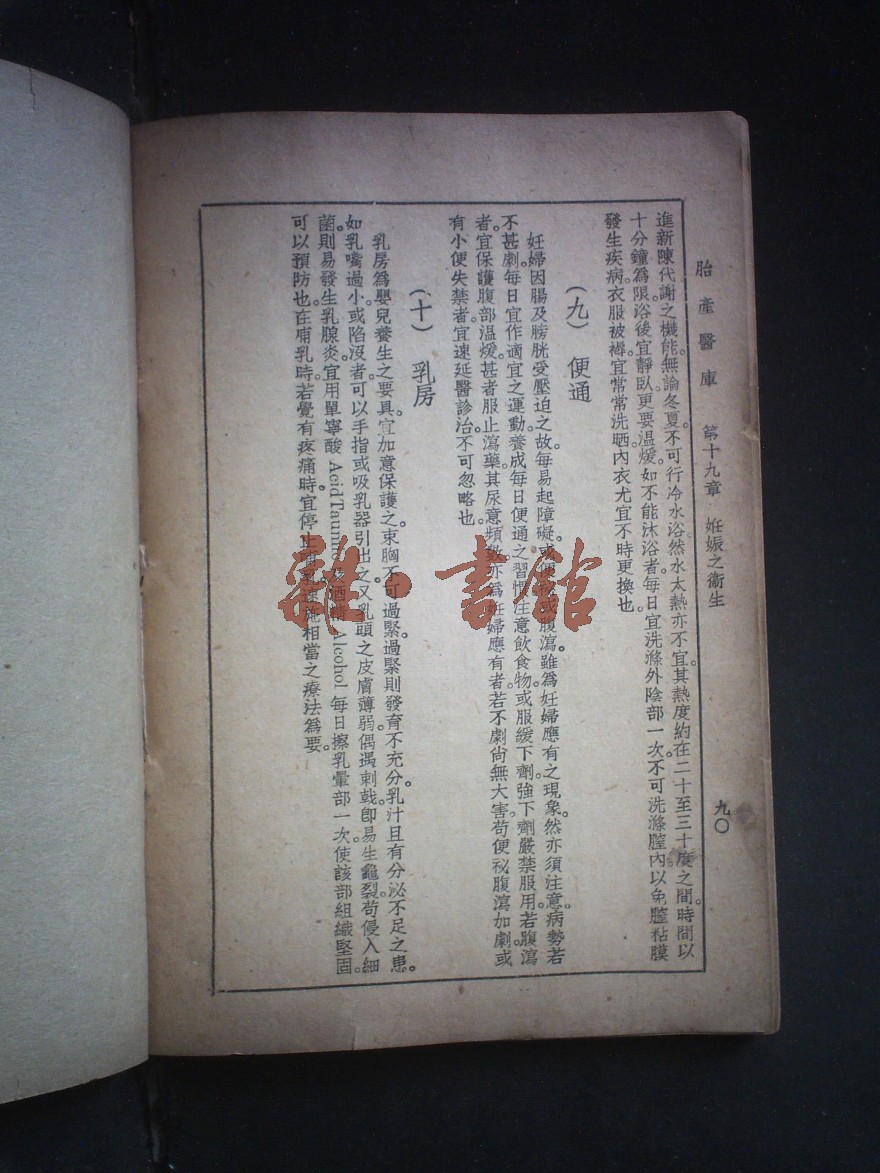 胎產醫庫　第十九章　妊娠之衞生　九〇
進新陳代謝之機能。無論冬夏。不可行冷水浴。然水太熱亦不宜。其熱度約在二十至三十度之間。時間以
十分鐘爲限。浴後宜靜臥。更要温煖。如不能沐浴者。每日宜洗滌外陰部一次。不可洗滌膣內。以免膣粘膜
發生疾病。衣服被褥。宜常常洗晒。內衣尤宜不時更換也。
(九)　便通
妊婦因腸及膀胱受壓迫之故。每易起障礙。或便祕或腹瀉。雖爲妊婦應有之現象。然亦須注意。病勢若
不甚劇。每日宜作適宜之運動。養成每日便通之習慣。注意飲食物。或服緩下劑。強下劑嚴禁服用。若腹瀉
者。宜保護腹部温煖。甚者服止瀉藥。其尿意頻數。亦爲妊婦應有者。若不劇尙無大害。苟便祕腹瀉加劇。或
有小便失禁者。宜速延醫診治。不可忽略也。
(十)　乳房
乳房爲嬰兒養生之要具。宜加意保護之。束胸不可過緊。過緊則發育不充分。乳汁且有分泌不足之患。
如乳嘴過小。或陷沒者。可以手指或吸乳器引出之。又乳頭之皮膚薄弱。偶遇刺戟。卽易生龜裂。苟侵入細
菌。則易發生乳腺炎。宜用單寧酸 Acid Taunnic 及酒精 Alcohol 每日擦乳暈部一次。使該部組織堅固。
可以預防也。在哺乳時。若覺有疼痛時。宜停止哺乳。速施相當之療法爲要。
雜·書館